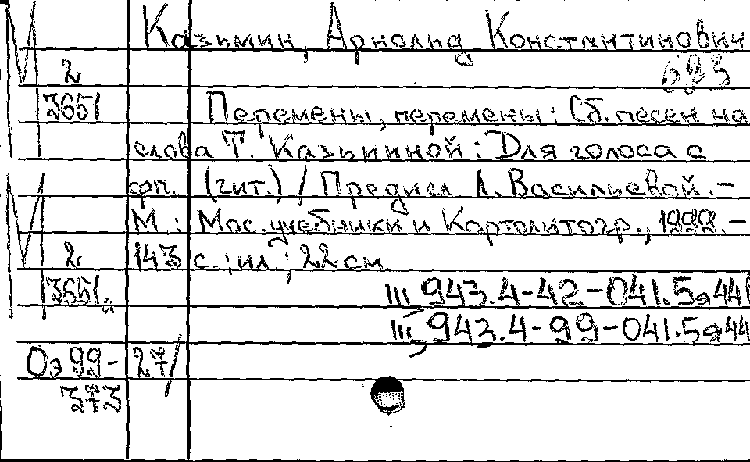 Казьмин, Арнольд Константинович
М 2 683
3651 Перемены, перемены: Сб. песен на
слова Т. Казьминой: Для голоса с
фп. (гит.) / Предисл. Л. Васильевой. –
М.: Мос. учебники и Картолитогр., 1999. –
М 2 143 с.; ил.; 22 см
3651. Щ943.4-42-041.5я44
Щ943.4-99-041.5я44
Оэ 99- 27/
373